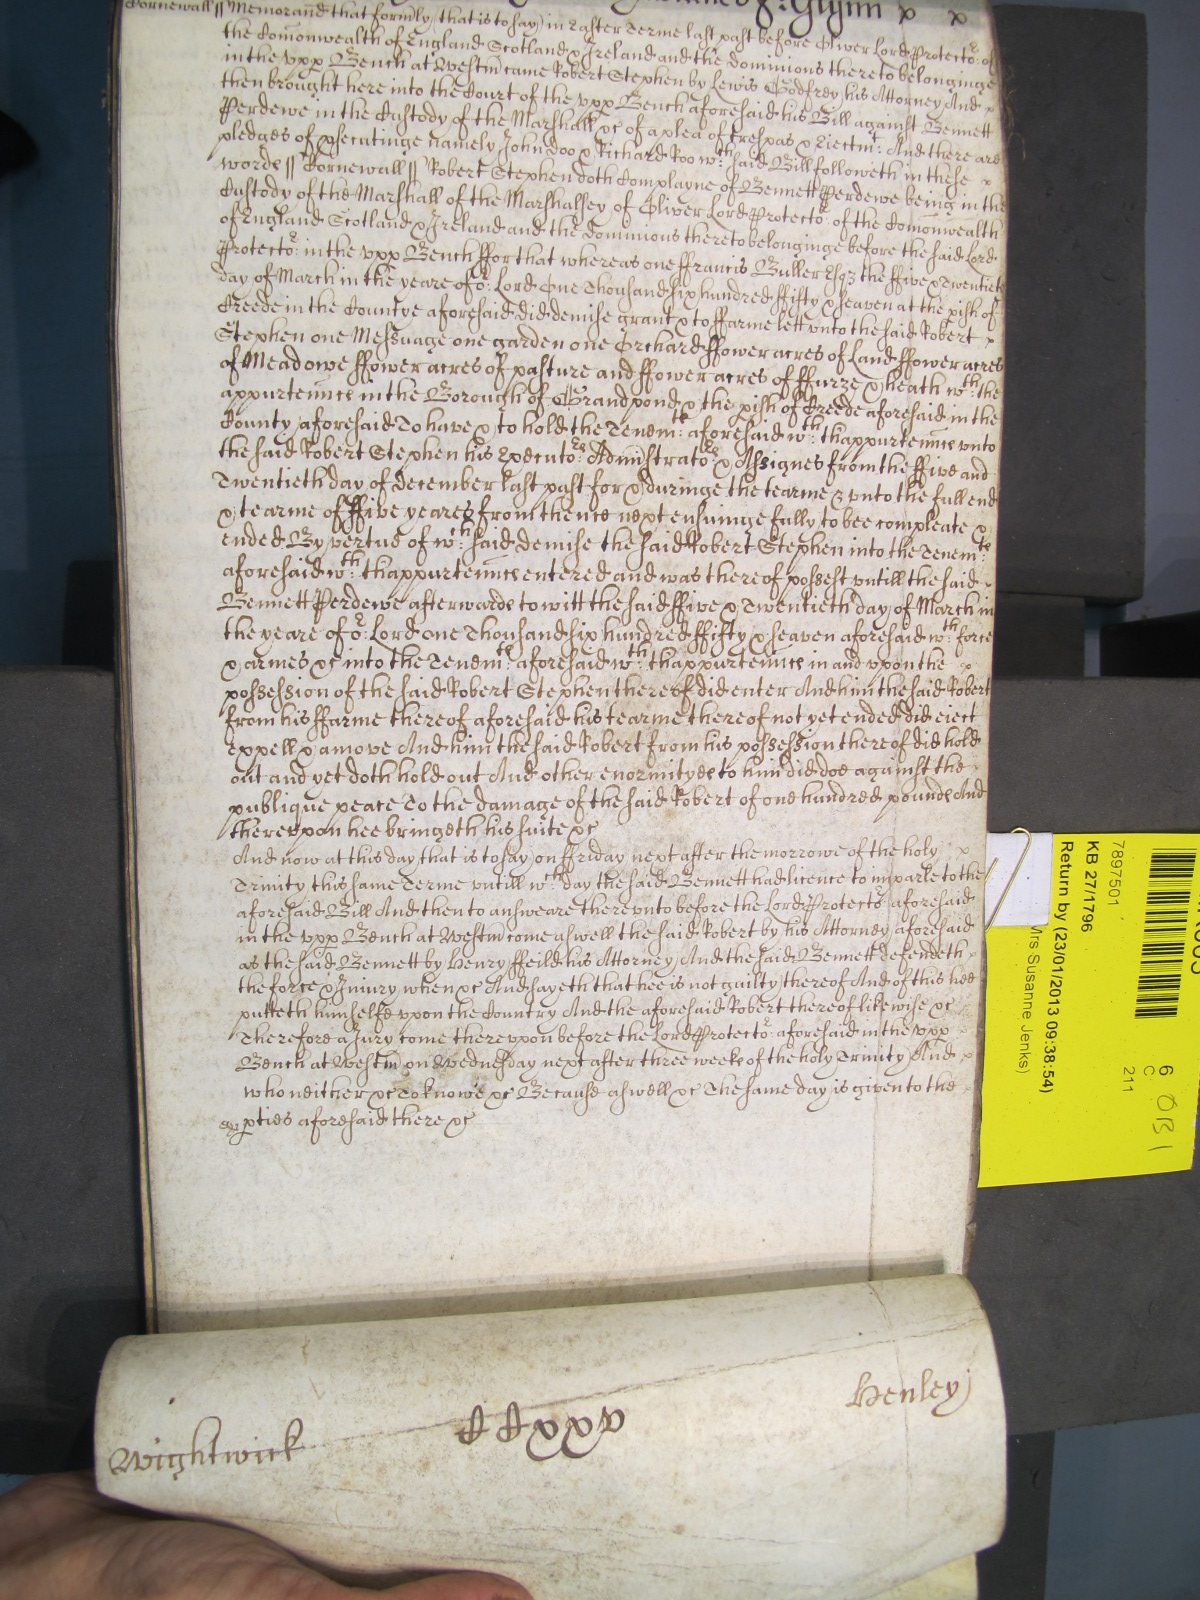 Glynn x x
Cornewall ss Memorand that formly (that is to say) in Easter Terme last past before Oliver Lord Protector: of
the Com̄onwealth of England Scotland & Ireland and the dominions thereto belonginge
in the vpp Bench at Westm̄ came Robert Stephen by Lewis Godfrey his Attorney And x
then brought here into the Court of the vpp Bench aforesaid his Bill against Bennett
Perdewe in the Custody of the Marshall &c of a plea of trespas & Eiectmt: And there are
pledges of p̱secutinge namely John doo & Richard Roo wch: said Bill followeth in these x
words ss Cornewall ss Robert Stephen doth Complayne of Bennett Perdewe being in the
Custody of the Marshall of the Marshalsey of Oliver Lord Protector: of the Com̄onwealth
of England Scotland & Ireland and the dominions thereto belonginge before the said Lord
Protector: in the vpp Bench ffor that whereas one ffrancis Buller Esqz the ffive & Twentieth
day of March in the yeare of or: Lord One Thousand six hundred ffifty & seaven at the pish of
Creede in the Countye aforesaid did demise grant & to ffarme lett vnto the said Robert x
Stephen one Messuage one garden one Orchard ffower acres of Land ffower acres
of Meadowe ffower acres of pasture and ffower acres of ffurze & heath wth: the
appurtennces in the Borough of Grandpond & the pish of Creede aforesaid in the
County aforesaid To have & to hold the Tenemts: aforesaid wth: thappurtennces vnto
the said Robert Stephen his Executors: Administrators: & Assignes from the ffive and
Twentieth day of december last past for & duringe the tearme & vnto the full end
& tearme of ffive yeares from thence next ensuinge fully to bee compleate &
ended By vertue of wch: said demise the said Robert Stephen into the Tenemts:
aforesaid wth: thappurtennces entered and was thereof possest vntill the said
Bennett Perdewe afterwards to witt the said ffive & Twentieth day of March in
the yeare of or: Lord one Thousand six hundred ffifty & seaven aforesaid wth: force
& armes &c into the Tenemts: aforesaid wth: thappurtennces in and vpon the x
possession of the said Robert Stephen thereof did enter And him the said Robert
from his ffarme thereof aforesaid his tearme thereof not yet ended did eiect
expell & amove And him the said Robert from his possession thereof did hold
out and yet doth hold out And other enormityes to him did doe against the
publique peace To the damage of the said Robert of one hundred pounds And
therevpon hee bringeth his suite &c
And now at this day that is to say on ffriday next after the morrowe of the holy x
Trinity this same Terme vntill wch: day the said Bennett had licence to imparle to the
aforesaid Bill And then to answeare therevnto before the Lord Protector aforesaid
in the vpp Bench at Westm̄ come aswell the said Robert by his Attorney aforesaid
as the said Bennett by Henry ffeild his Attorney And the said Bennett defendeth
the force & Iniury when &c And sayeth that hee is not guilty thereof And of this hee
putteth himselfe vpon the Country And the aforesaid Robert thereof likewise &c
Therefore a Jury come therevpon before the Lord Protector: aforesaid in the vpp
Bench at Westm̄ on Wednesday next after three weeks of the holy Trinity And x
who neither &c To knowe &c Because aswell &c The same day is given to the
p̱ties aforesaid there &c
Wightwick
Henley
7897501
KB 27/1796
Return by (23/01/2013 09:38:54)
Mrs Susanne Jenks)
6
C
211
OB1